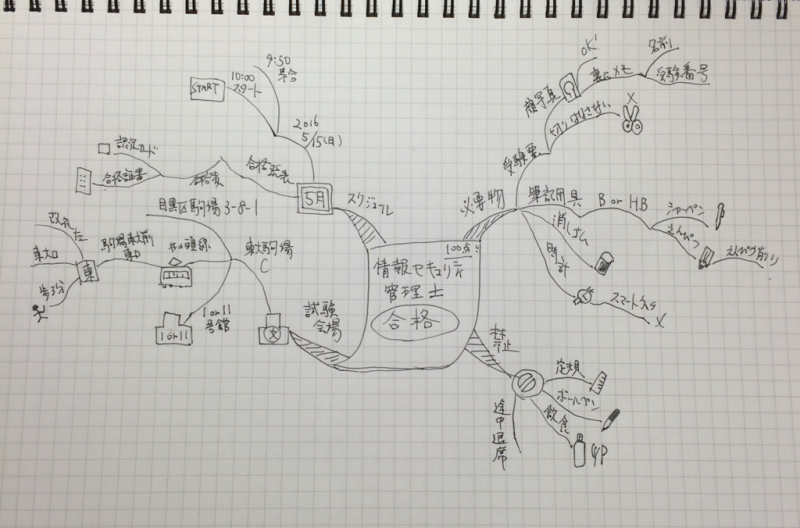 情報セキュリティ
管理士
合格
スケジュール
5月
2016
5/15(日)
9:50
集合
10:00
スタート
START
合格発表
合格証書
認定カード
試験
会場
東大駒場
C
目黒区駒場3-8-1
井の頭線
駒場東大前
東口
東
改札
左
東大口
歩3分
1 or 11
号館
1 or 11
必要物
受験票
顔写真
OK!
裏にメモ
名前
受験番号
切りはなさない
X
筆記用具
B or HB
シャーペン
えんぴつ
えんぴつ削り
消しゴム
時計
スマートウォッチ
X
禁止
定規
ボールペン
飲食
途中退席